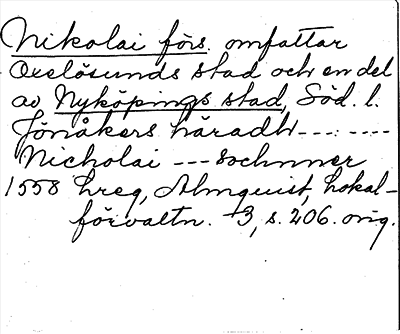 Nikolai förs. omfattar
Oxelösunds stad och en del
av Nyköpings stad, Söd. l.
Jönåkers häradh --- ---
Nicholai --- Sochnner
1558 hreg, Almquist, Lokal-
förvaltn. 3, s. 206. orig.